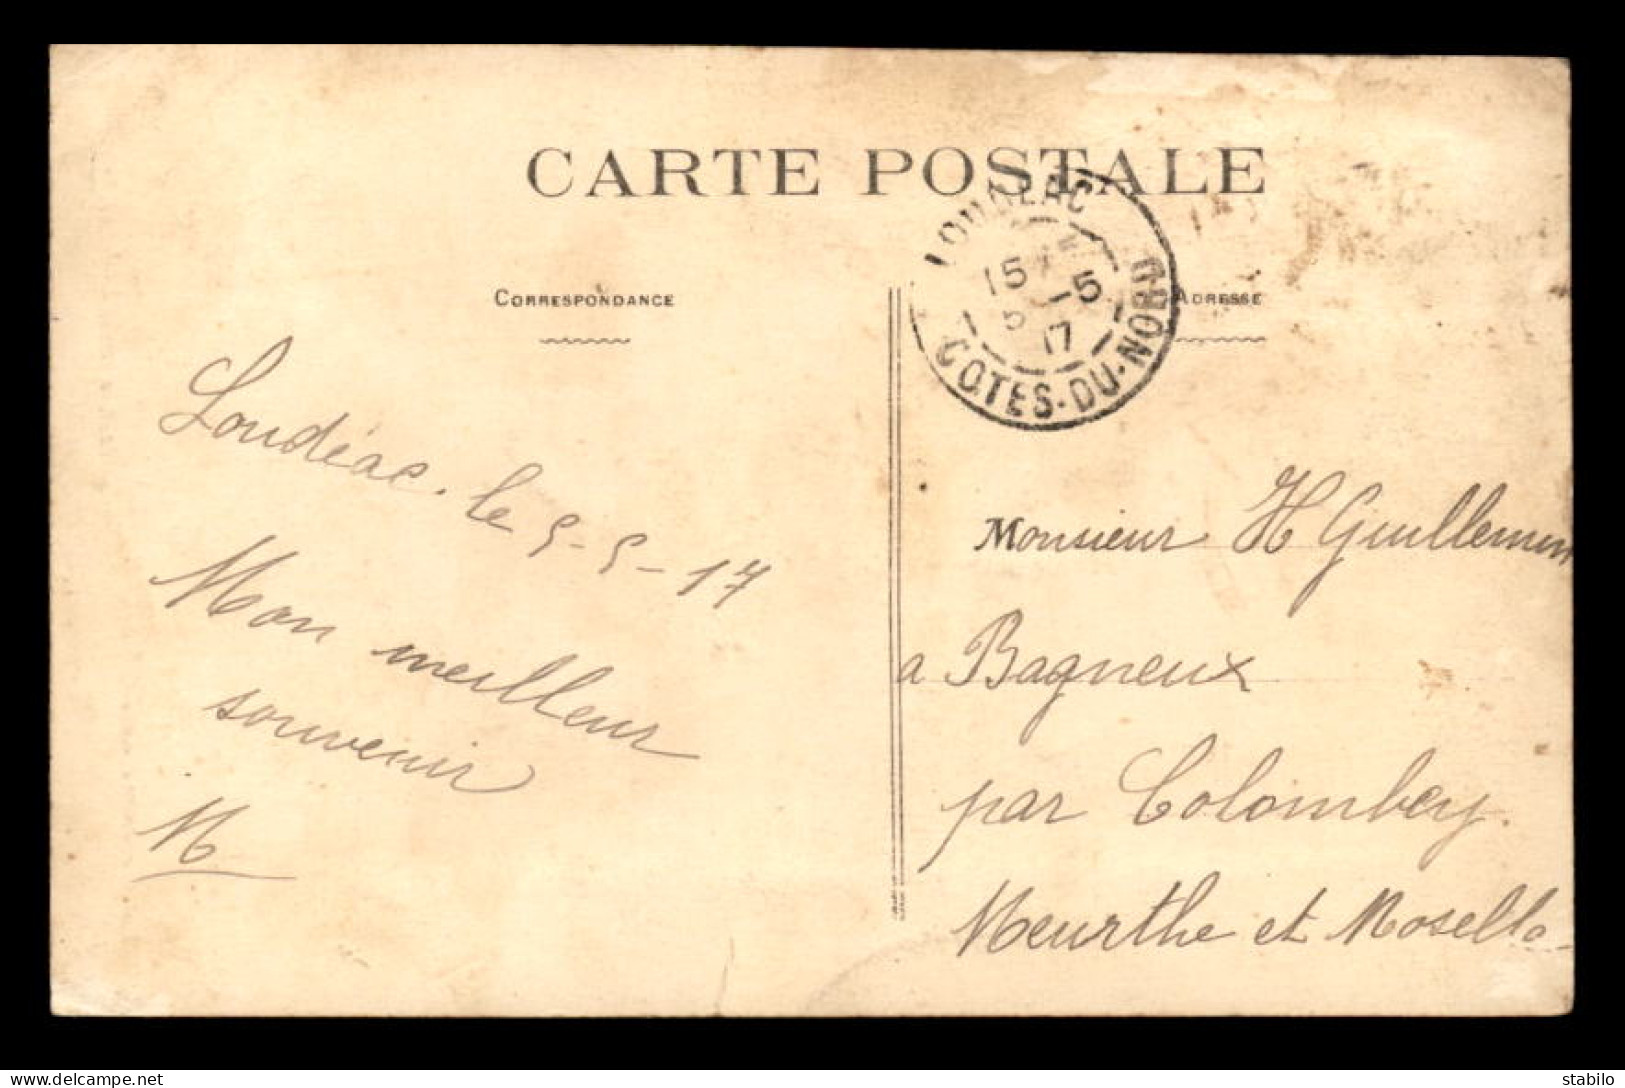 CARTE POSTALE
LOUDEAC
15
5 -5
17
COTES-DU-NORD
CORRESPONDANCE
ADRESSE
Loudéac. le 5-5-17
Mon meilleur
souvenir
M
Monsieur H Guillemin
a Bagneux
par Colombey.
Meurthe et Moselle
delcampe.net
stabilo